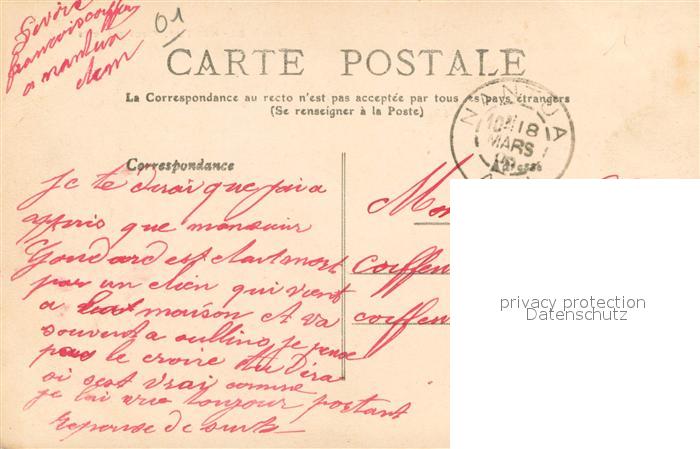 Sevoir
francois coiffeur
a nantua
Aem
01
CARTE POSTALE
La Correspondance au recto n'est pas acceptée par tous les pays étrangers
(Se renseigner à la Poste)
NANTUA
18
MARS
Correspondance
Adresse
je te dirai que jai a
appris que monsieur
Gondard est mort
par un chien qui vient
a la maison et va
souvent a oullins je pense
pas le croire tu dira
si sest vrai comme
je lai vue toujour portant
reponse de suite
coiffeu
coiffeu
privacy protection
Datenschutz